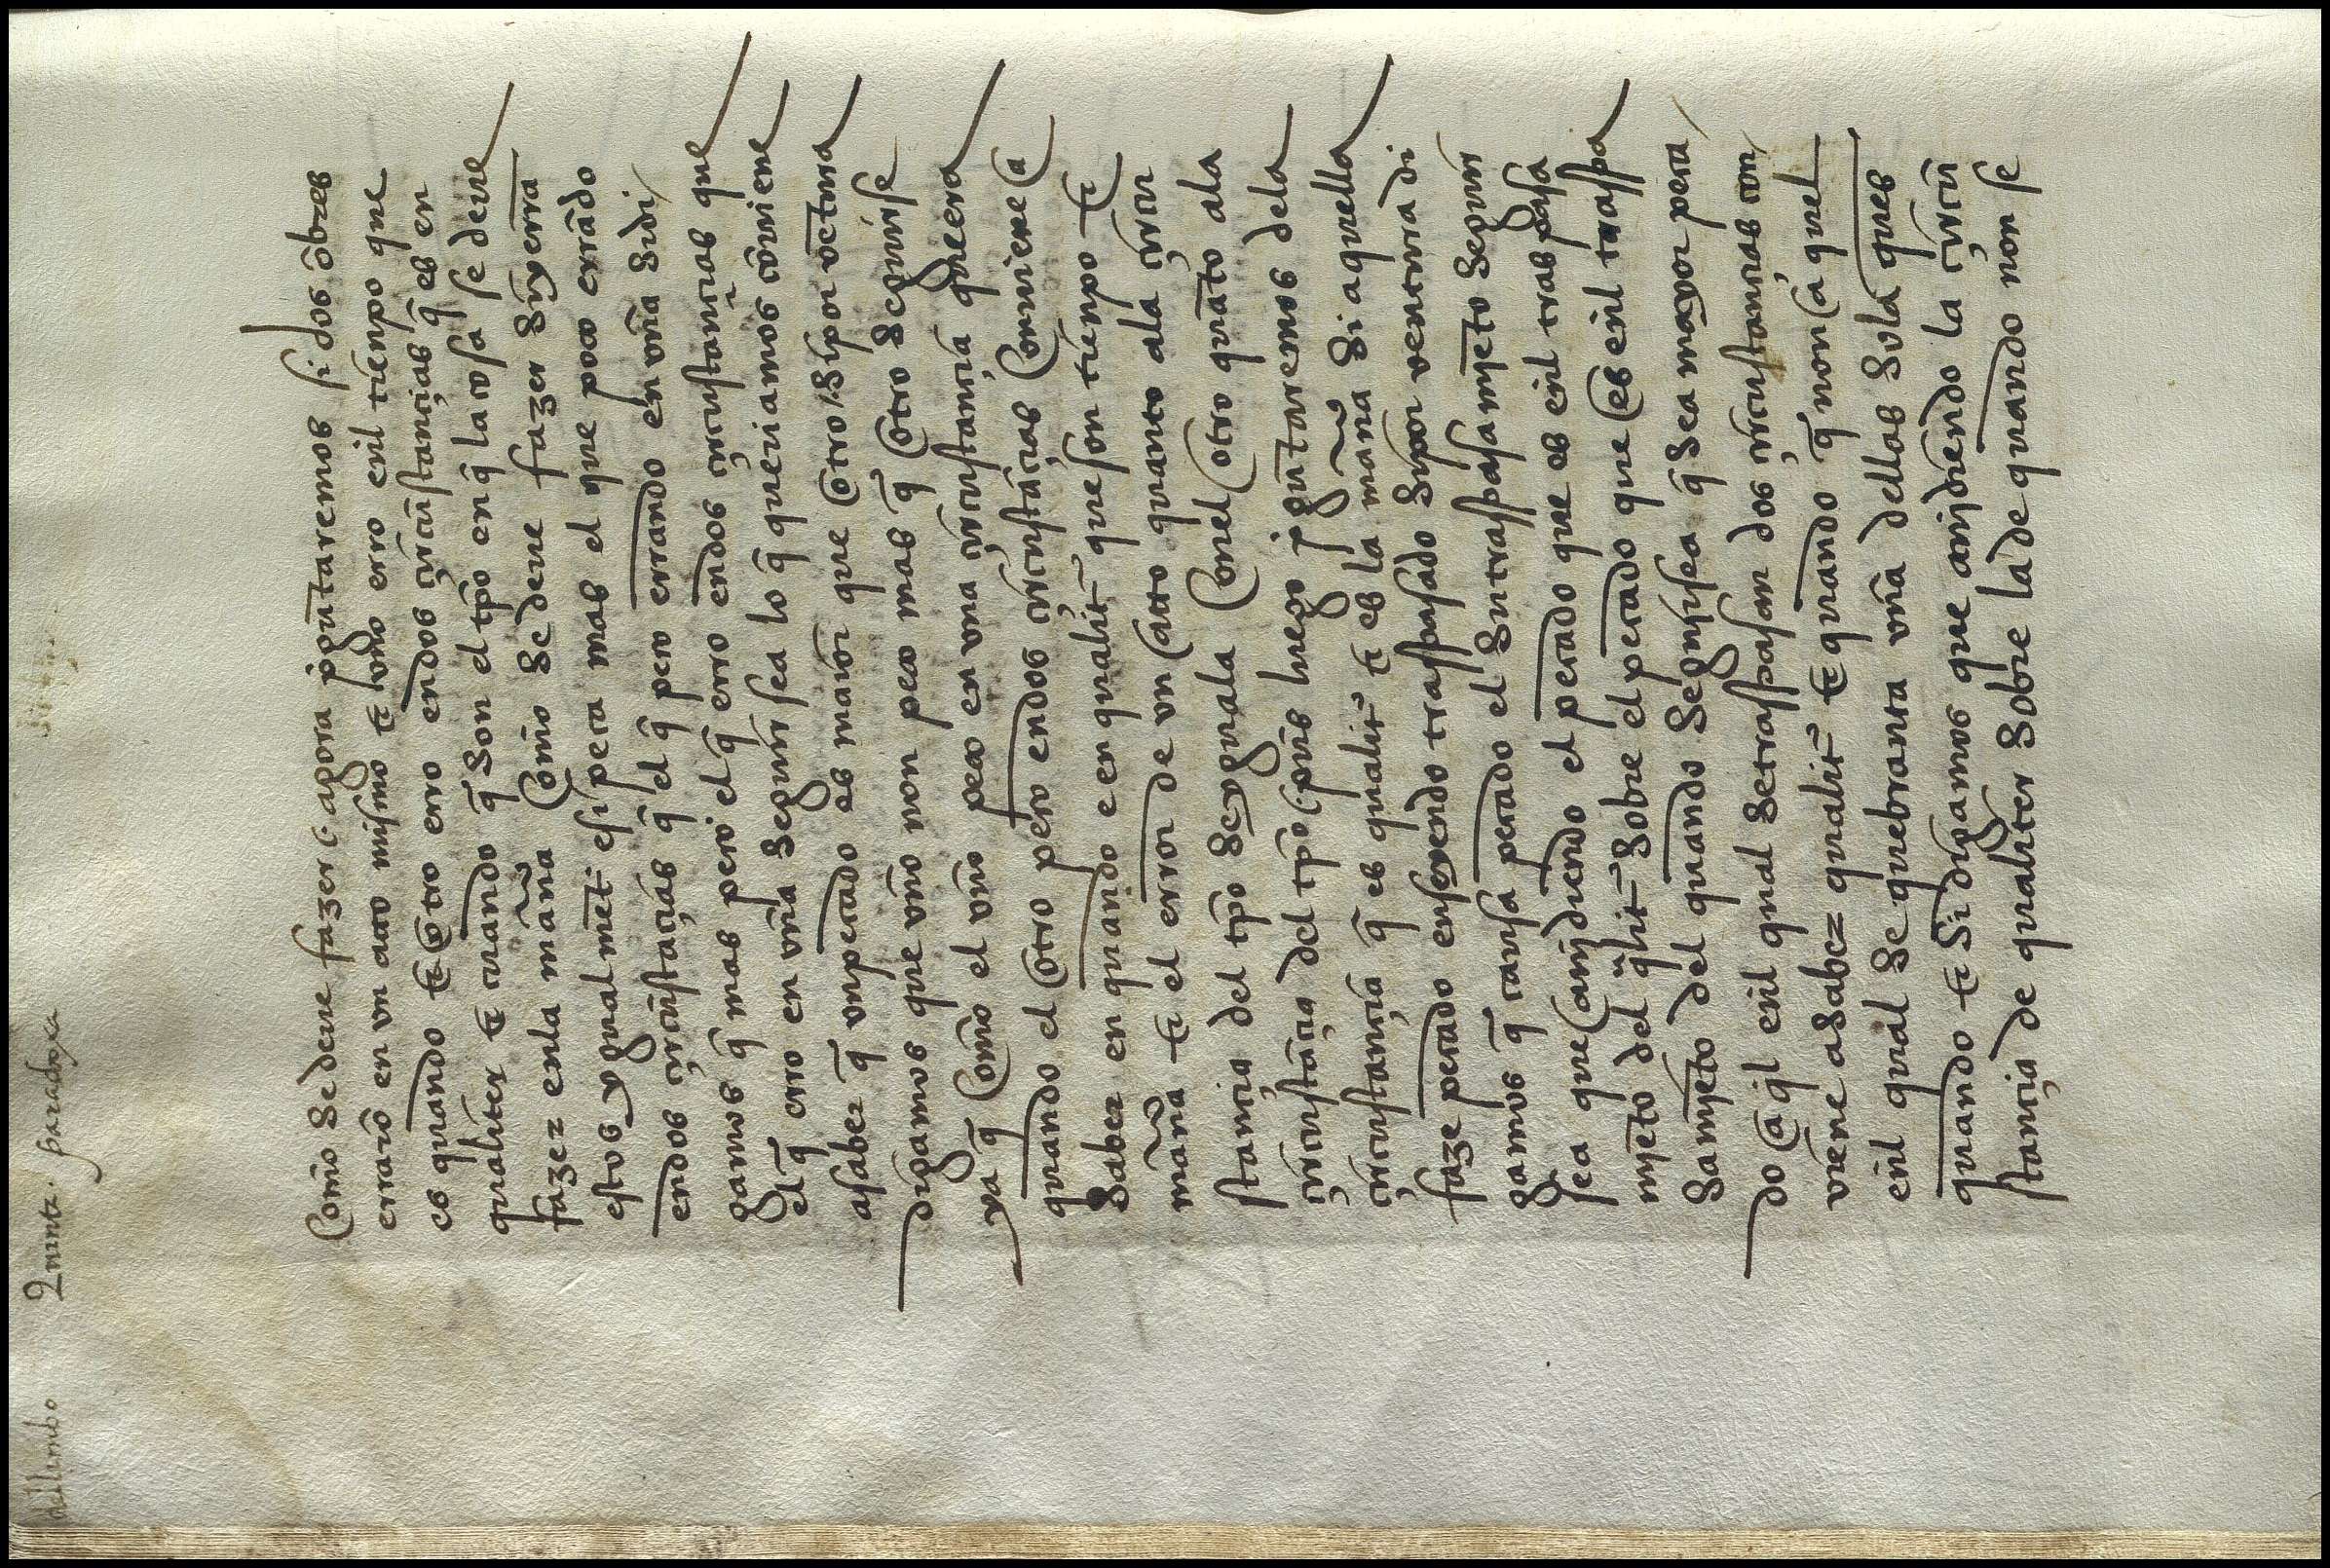 del limbo Quinta paradoxa
Como se deue fazer (. agora p̱gūtaremos si dos ōbres
errarō en vn acto mismo τ̄ el vno erro enl tienpo que
es quando τ̄ el otro erro en dos çircūstançias q̄ es en
qualiter τ̄ quando q̄ son el tp̄o en q̄ la cosa se deue
fazer en la man̄a como se deue fazer si yerra
estos ygualmēt̄ e si peca mas el que peco errādo
en dos çircūstāçias q̄ el q̄ peco errando en vn̄a si di
gamos q̄ mas peco el q̄ erro en dos çircustançias que
el q̄ erro en vn̄a seguir sea lo q̄ queriamos cōuiene
a saber q̄ vn pecado es maior que otro / si por vētura
digamos que vno non peco mas q̄ el otro seguirse
ya q̄ como el vno peco en vna çircustançia que era
quando el otro peco en dos çircustāçias conuiene a
saber en quando e en qualit̄ que son tienpo τ̄
man̄a τ̄ el error de vn acto quanto a la çircu
stançia del tp̄o se yguala con el otro quāto a la
çircustāçia del tp̄o (. pues luego p̱gūtaremos de la
çircustançia q̄ es qualit̄ τ̄ es la man̄a si aquella
faze pecado en seyendo traspasado si por ventura di
gamos q̄ causa pecado el su traspasamjēto seguir
sea que an̄adiendo el pecado que es enl traspasa
mjēto del qlit̄ sobre el pecado que es enl traspa
samjēto del quando seguirsea q̄ sea mayor peca
do aq̄l enl qual se traspasan dos çircustançias con
uiene a saber qualit̄ τ̄ quando q̄ non aquel
enl qual se quebranta vn̄a dellas sola ques
quando τ̄ si digamos que an̄adiēdo la çircū
stançia de qualiter sobre la de quando non se